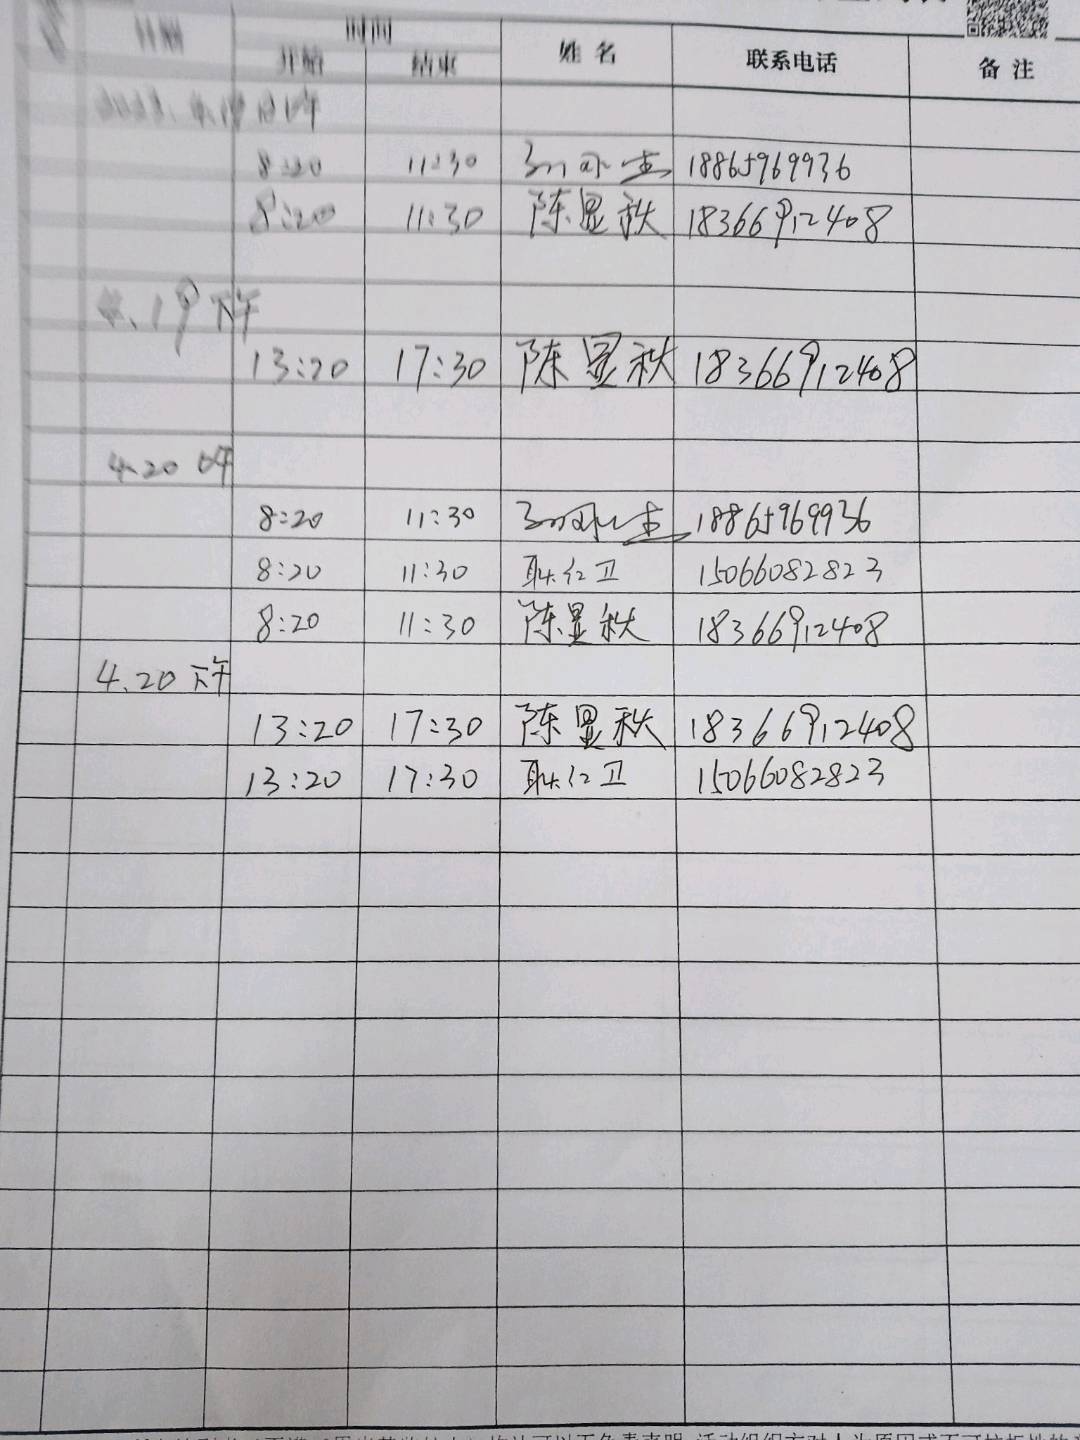 日期 时间 姓名 联系电话 备注
开始 结束
8:20 11:30 18865969936
8:20 11:30 陈显秋 18366912408
4.19下午
13:20 17:30 陈显秋 18366912408
4.20 上午
8:20 11:30 18865969936
8:20 11:30 耿红卫 15066082823
8:20 11:30 陈显秋 18366912408
4.20 下午
13:20 17:30 陈显秋 18366912408
13:20 17:30 耿红卫 15066082823